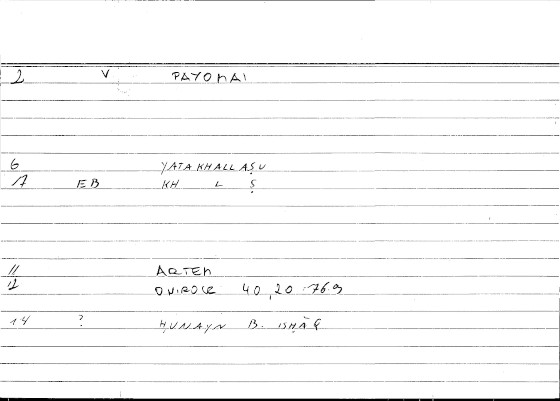 2 V PAYOMAI
6 YATAKHALLAṢU
17 EB KH L Ṣ
11 ARTEM
12 40,20 76.9
14 ? ḤUNAYN B. ISḤĀQ